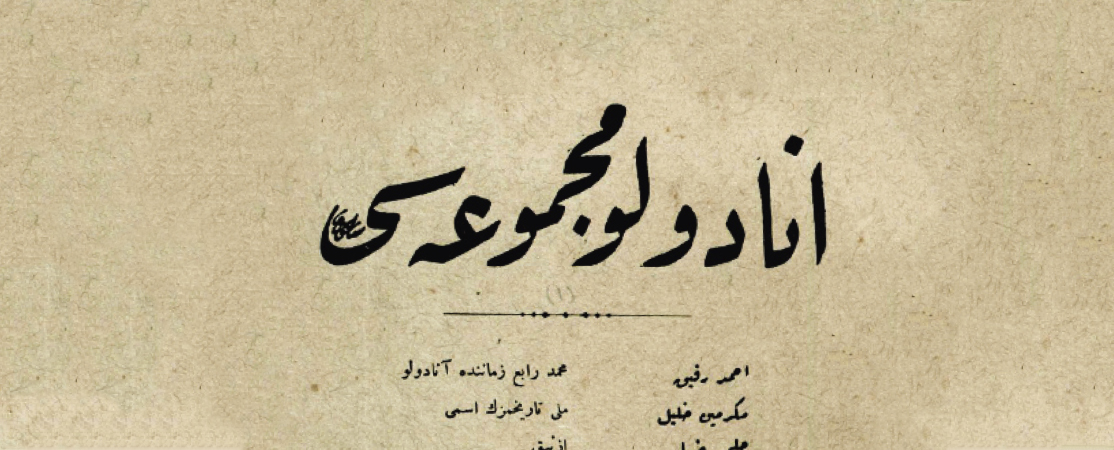 انادولو مجموعه سی
(١)
احمد رفيق محمد رابع زماننده آنادولو
مكرمين خليل ملى تاريخمزك اسمى